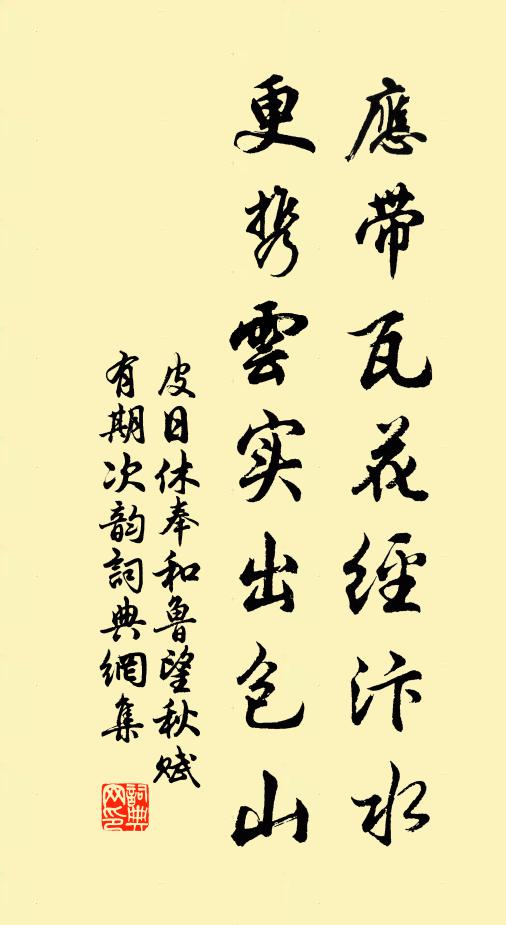 應帶瓦花經汴水
更携雲实出包山
皮日休奉和魯望秋賦
有期次韵詞典網集
詞典
网印